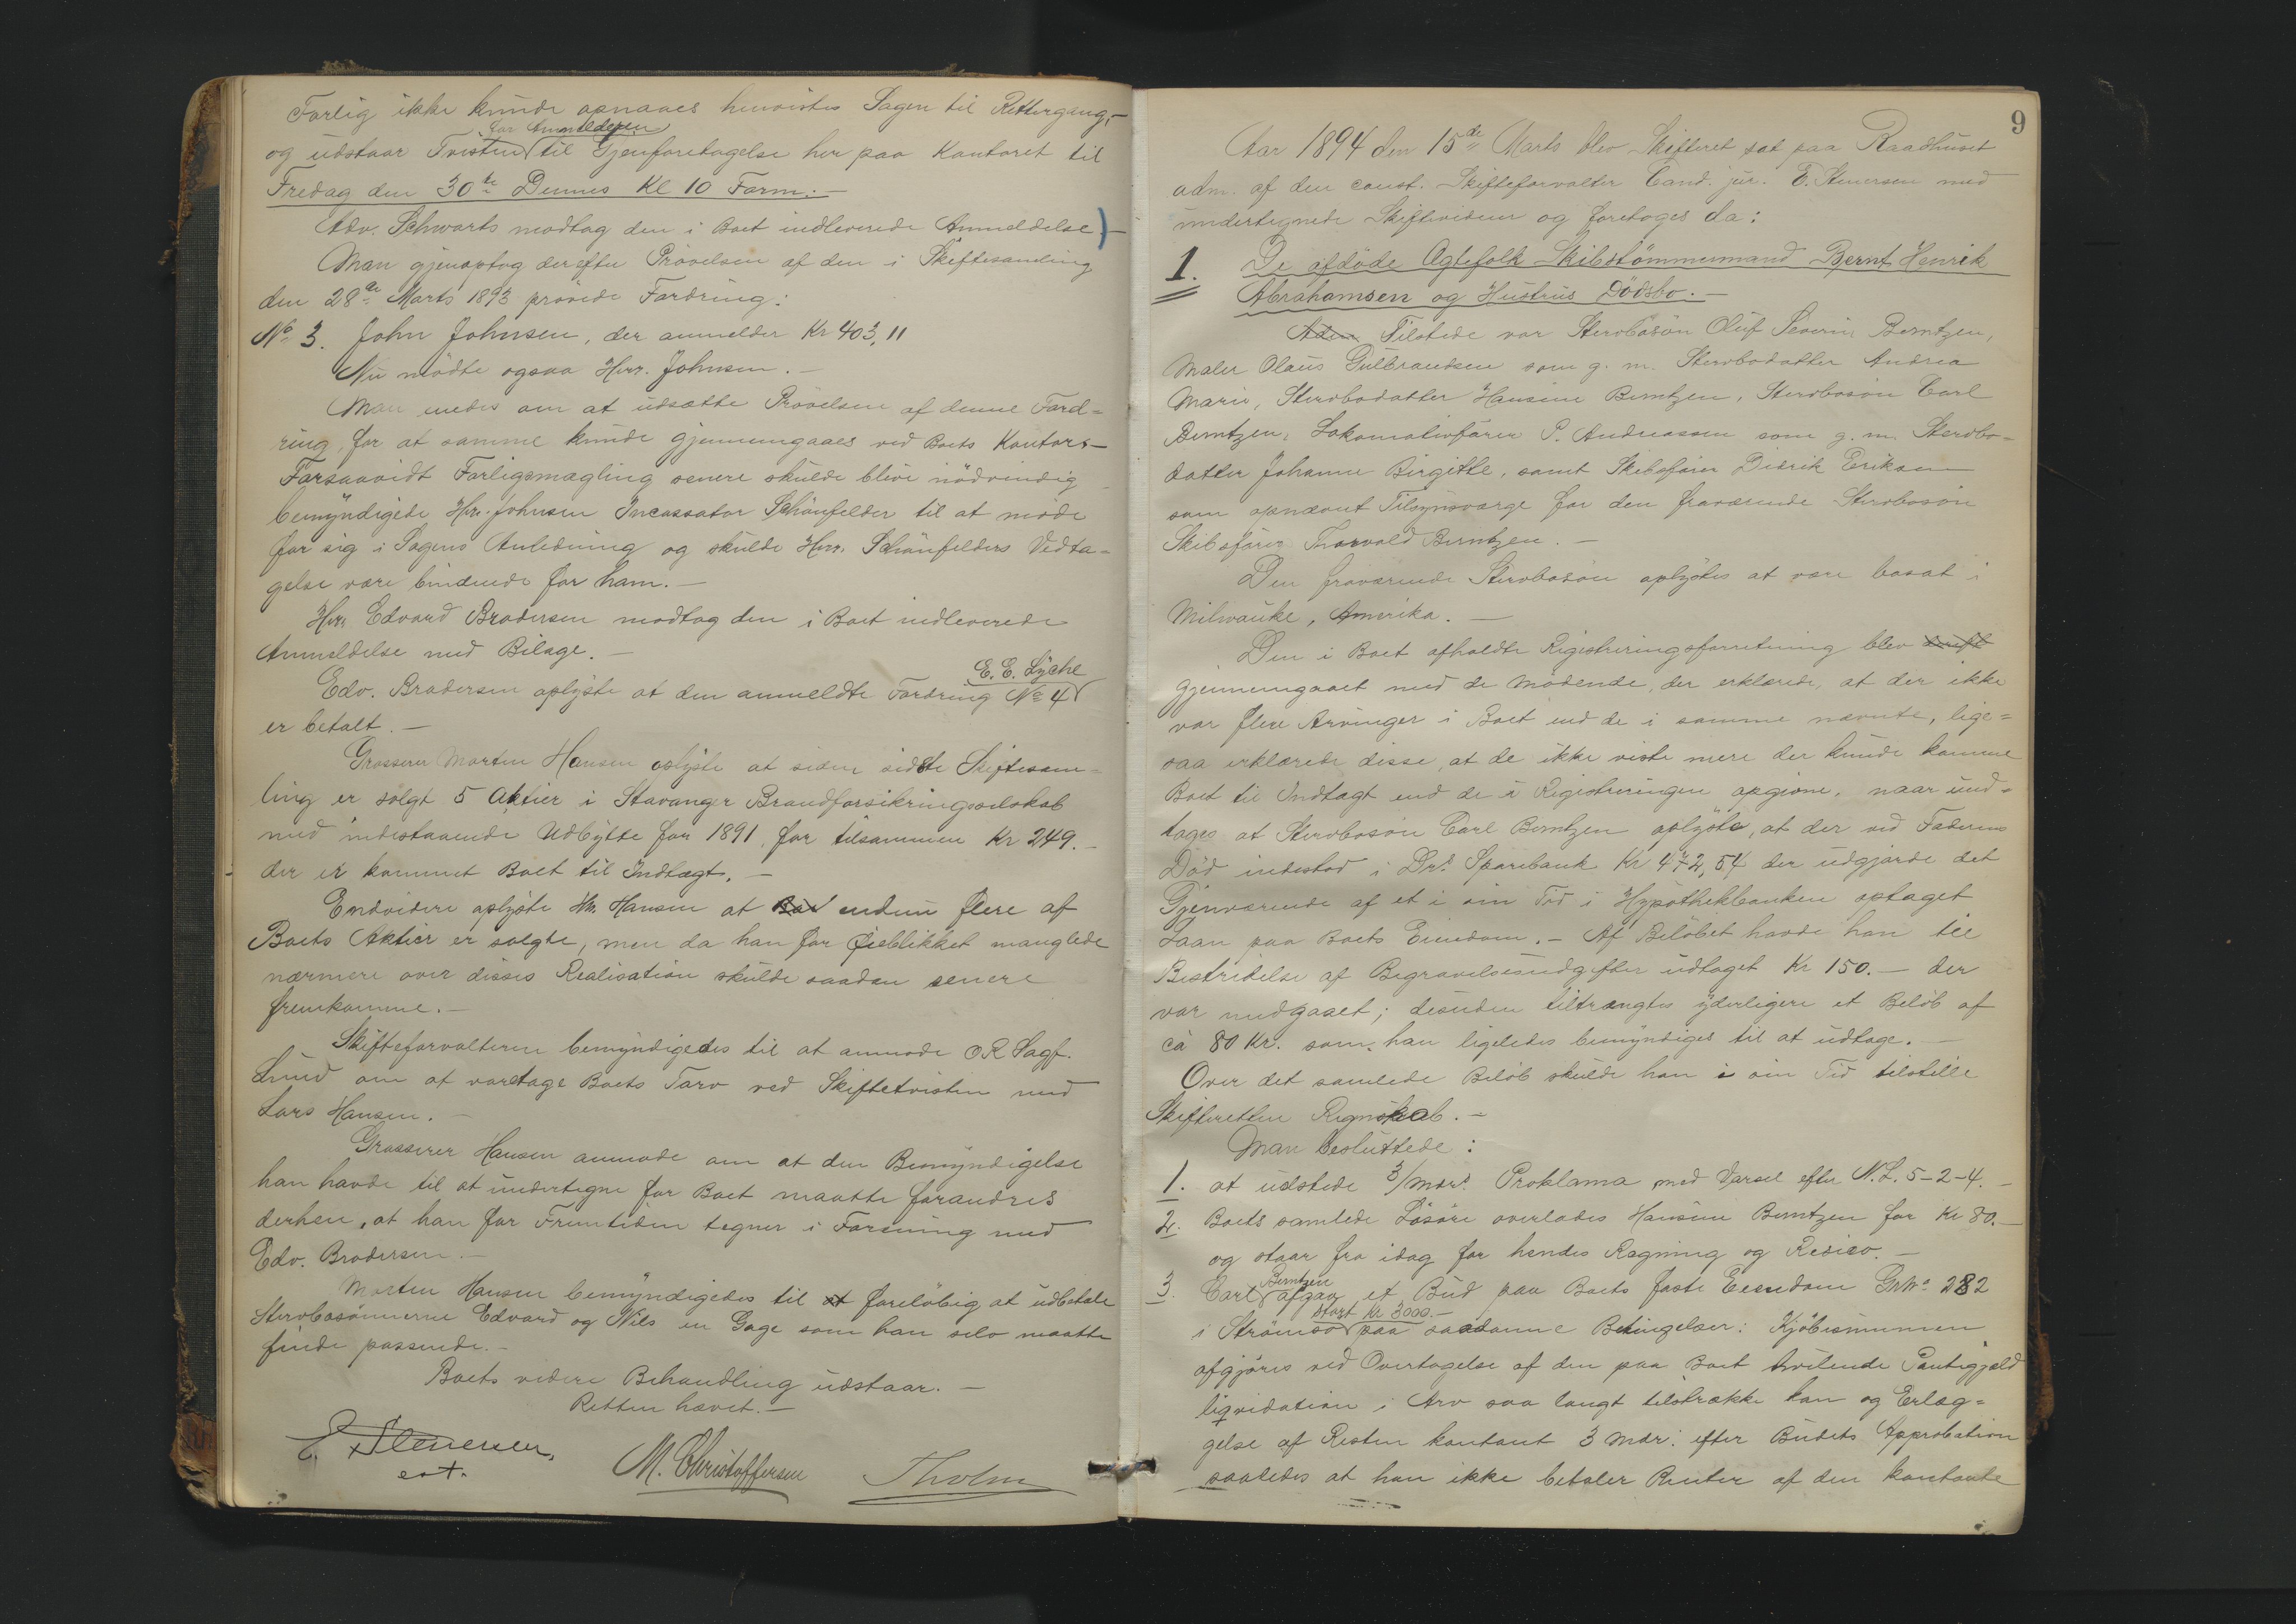 Forlig ikke kunde opnaaes henvistes Sagen til Rettergang,-
for Anmeldelsen
og udstaar Tvisten til Gjenforetagelse her paa Kontoret til
Fredag den 30te Dennes Kl 10 Form.-
Adv. Schwartz modtog den i Boet indleverede Anmeldelse)-
Man gjenoptog derefter Prøvelsen af den i Skiftesamling
den 28de Marts 1893 prøvede Fordring:
No 3. John Johnsen, der anmelder Kr 403,11
Nu mødte ogsaa Herr. Johnsen.-
Man enedes om at udsætte Prøvelsen af denne Ford=
ring, for at samme kunde gjennemgaaes ved Boets Kontor.-
Forsaavidt Forligsmægling senere skulde blive nødvendig
bemyndigede Hrr. Johnsen Incassator Schönfelder til at møde
for sig i Sagens Anledning og skulde Hrr. Schönfelders Vedta=
gelse være bindende for ham.-
Hrr Edvard Brodersen modtog den i Boet indleverede
Anmeldelse med Bilage.-
E. E. Lyche
Edv. Brodersen oplyste at den anmeldte Fordring No 4
er betalt.-
Grosserer Morten Hansen oplyste at siden sidste Skiftesam=
ling er solgt 5 Aktier i Stavanger Brandforsikringsselskab
med indestaaende Udbytte for 1891, for tilsammen Kr 249.-
der er kommet Boet til Indtægt.-
Endvidere oplyste Hr. Hansen at Bo endnu flere af
Boets Aktier er solgte, men da han for Øieblikket manglede
nærmere over disses Realisation skulde saadan senere
fremkomme.-
Skifteforvalteren bemyndigedes til at anmode O R Sagf.
Lund om at varetage Boets Tarv ved Skiftetvisten med
Lars Hansen.-
Grosserer Hansen anmode om at den Bemyndigelse
han havde til at undertegne for Boet maatte forandres
derhen, at han for Fremtiden tegner i Forening med
Edv. Brodersen.-
Morten Hansen bemyndigedes til at foreløbig at udbetale
Stervbosønnerne Edvard og Nils en Gage som han selv maatte
finde passende.-
Boets videre Behandling udstaar.-
Retten hævet.-
E. Stenersen,
cst.
M. Christoffersen
Tholm
9
Aar 1894 den 15de Marts blev Skifteret sat paa Raadhuset
adm. af den const. Skifteforvalter Cand. jur. E. Stenersen med
undertegnede Skiftevidner og foretoges da:
1. De afdøde Ægtefolk Skibstømmermand Bernt Henrik
Abrahamsen og Hustrus Dødsbo.-
Tilstede var Stervbosøn Oluf Severin Berntzen,
Maler Olaus Gulbrandsen som g. m. Stervbodatter Andrea
Marie, Stervbodatter Hansine Berntzen, Stervbosøn Carl
Berntzen, Lokomotivfører P. Andreassen som g. m. Stervbo=
datter Johanne Birgitte, samt Skibsfører Didrik Eriksen
som opnævnt Tilsynsværge for den fraværende Stervbosøn
Skibsfører Thorvald Berntzen.-
Den fraværende Stervbosøn oplystes at være bosat i
Milwauke, Amerika.-
Den i Boet afholdte Registreringsforretning blev
gjennemgaaet med de mødende, der erklærede, at der ikke
var flere Arvinger i Boet end de i samme nævnte, lige=
saa erklærede disse, at de ikke viste mere der kunde komme
Boet til Indtægt end de i Registreringen opgivne, naar und=
tages at Stervbosøn Carl Berntzen oplyste, at der ved Faderens
Død indestod i Drs Sparebank Kr 472,54 der udgjorde det
Gjenværende af et i sin Tid i Hypothekbanken optaget
Laan paa Boets Eiendom.- Af Beløbet havde han til
Bestridelse af Begravelsesudgifter udtaget Kr 150.- der
var medgaaet; desuden tiltrængtes yderligere et Beløb af
ca 80 Kr. som han ligeledes bemyndiges til at udtage.-
Over det samlede Beløb skulde han i sin Tid tilstille
Skifteretten Regnskab.-
Man besluttede:
1. at udstede 3/mdrs Proklama med Varsel efter N.L. 5-2-4.-
2. Boets samlede Løsøre overlodes Hansine Berntzen for Kr 80.-
og staar fra idag for hendes Regning og Risico.-
Berntzen
3. Carl afgav et Bud paa Boets faste Eiendom Gr No 282
stort Kr 3000.-
i Strømsø paa saadanne Betingelser: Kjøbesummen
afgjøres ved Overtagelse af den paa Boet hvilende Pantegjæld
liqvidation i Arv saa langt tilstrække kan og Erlæg=
gelse af Resten kontant 3 mdr. efter Budets Approbation
saaledes at han ikke betaler Renter af den kontante